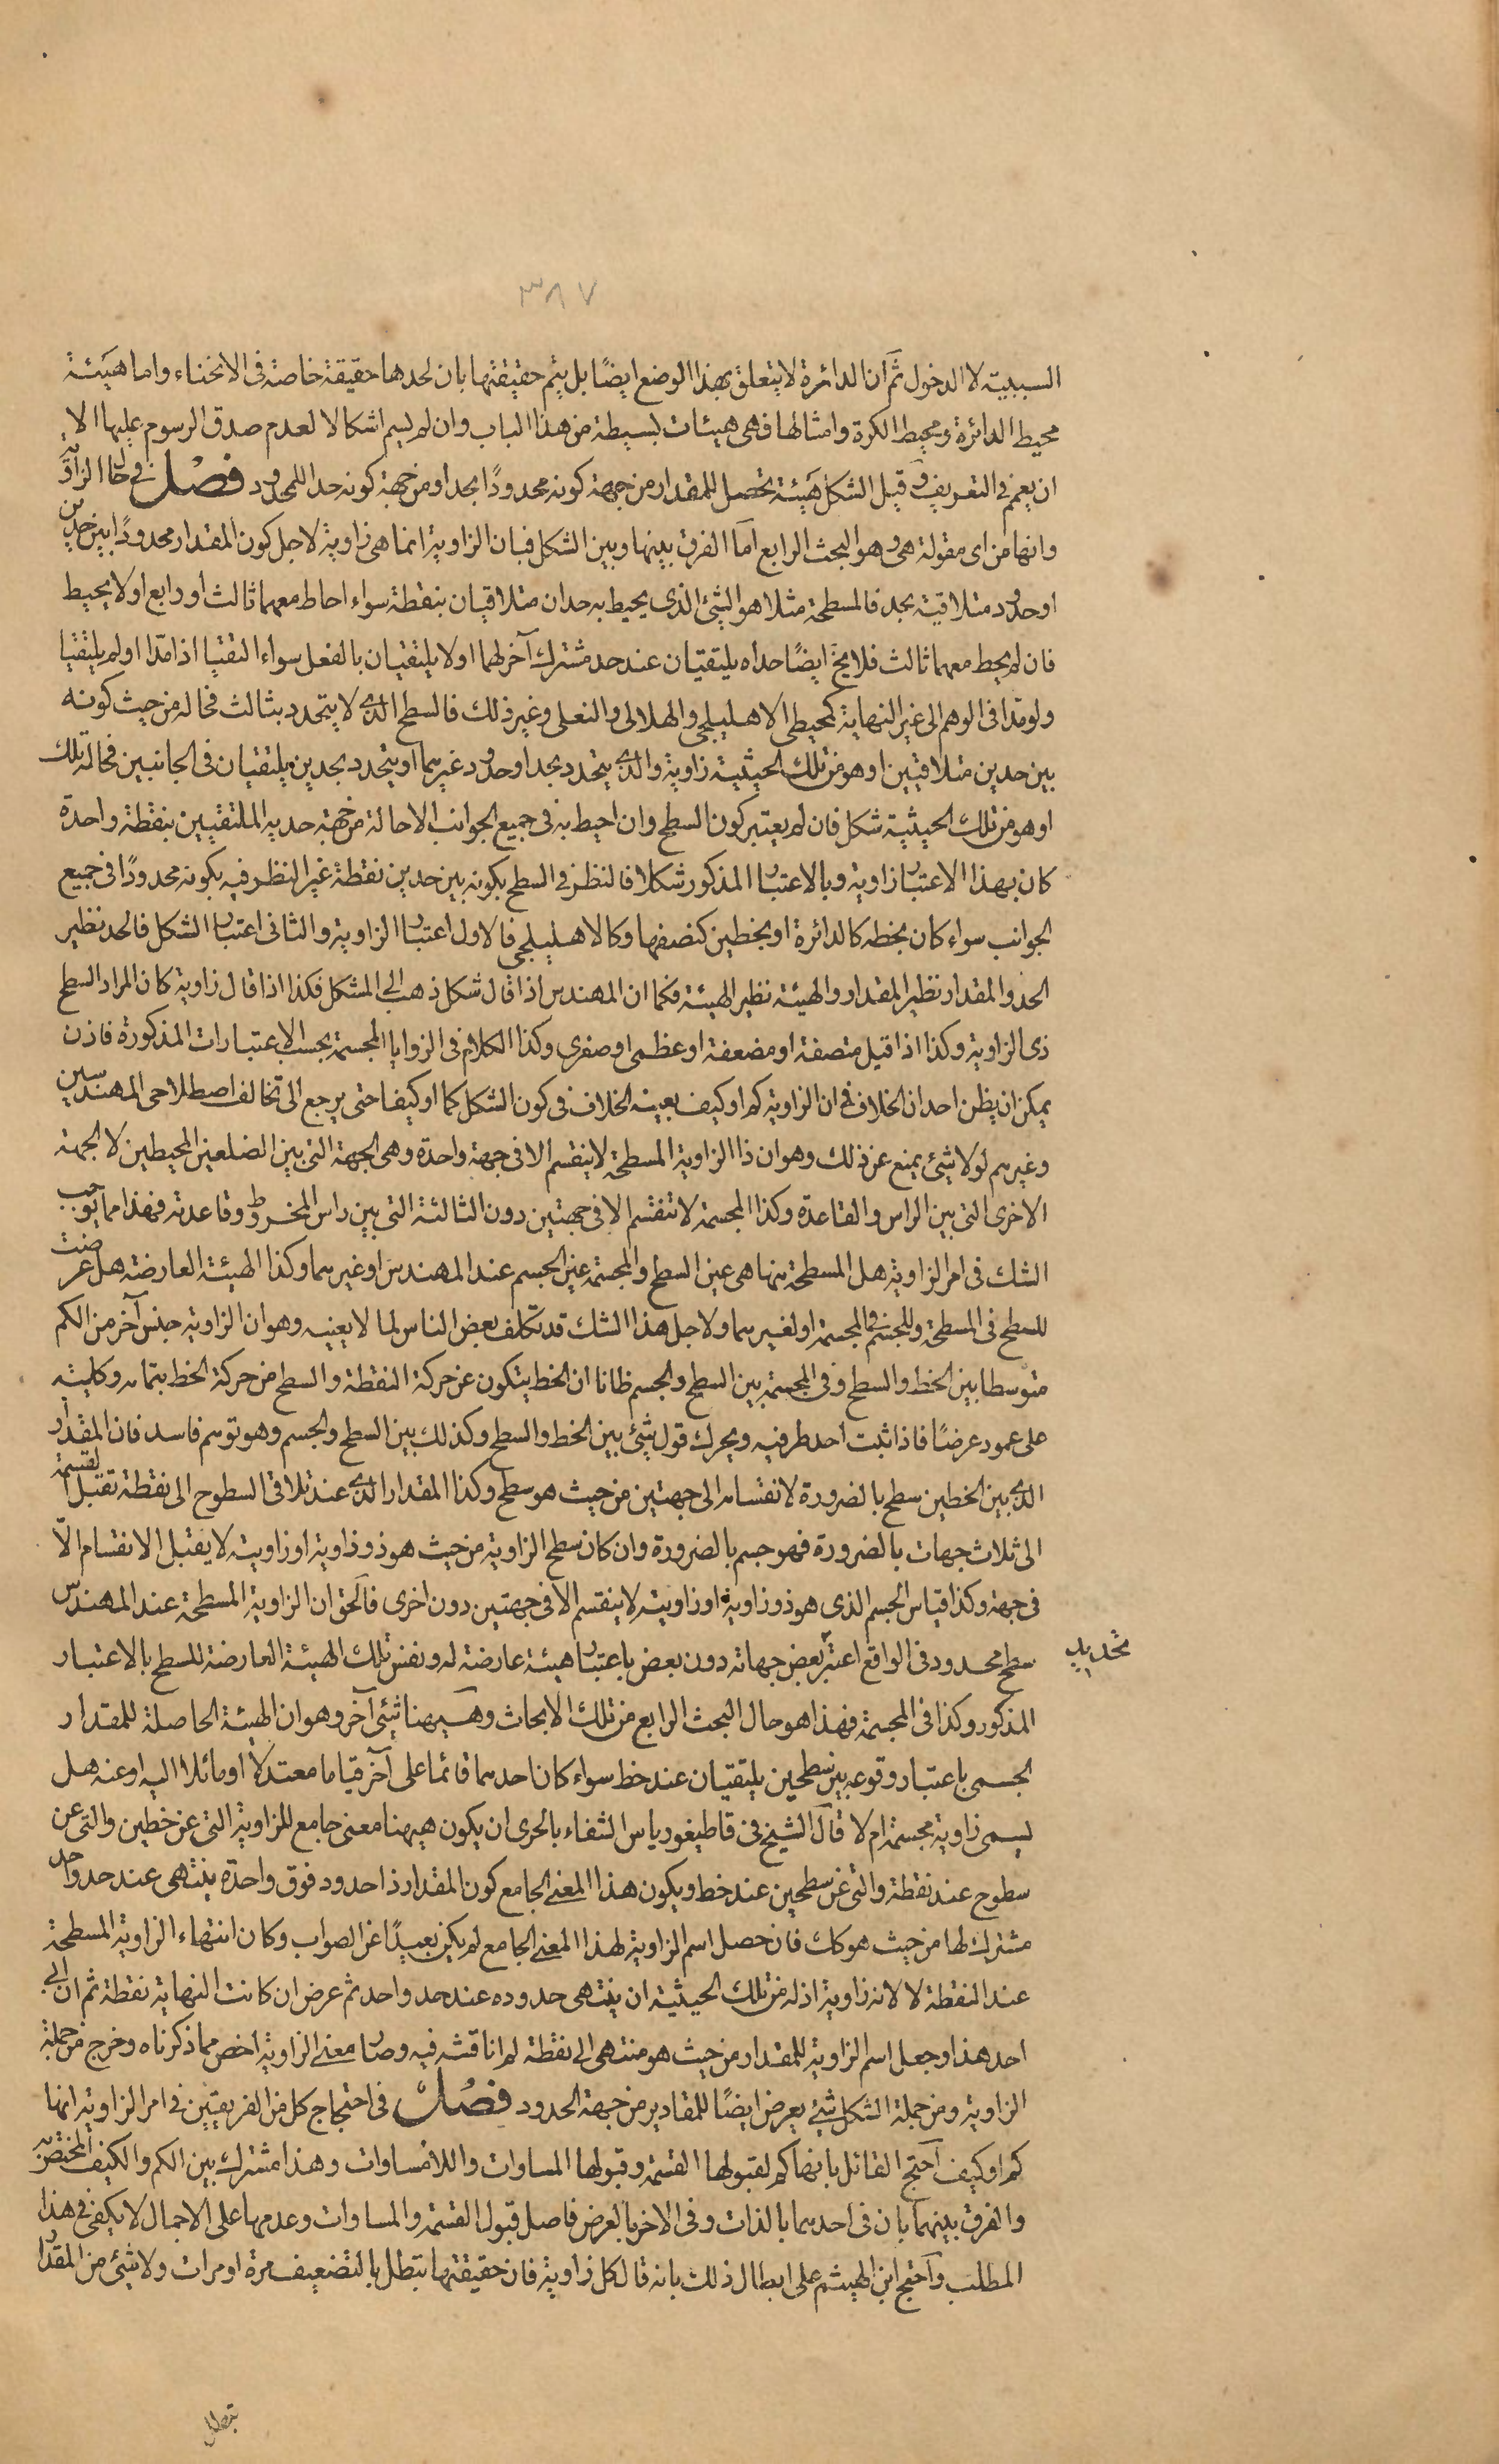 ٣٨٧
السببية لا الدخول ثم ان الدائرة لا يتعلق بهذا الوضع ايضًا بل يتم حقيقتها بان لحدها حقيقة خاصة فى الانحناء واما هيئة
محيط الدائرة ومحيط الكرة وامثالها فهى هيئات بسيطة من هذا الباب وان لم يسم اشكالا لعدم صدق الرسوم عليها الا
ان يعم فى التعريف وقيل الشكل هيئة تحصل للمقدار من جهة كونه محدودًا بحد او من جهة كونه حدا للمحدود فصل فى حال الزاوية
وانها من اى مقولة هى وهو البحث الرابع اما الفرق بينها وبين الشكل فبان الزاوية انما هى زاوية لاجل كون المقدار محدودًا بين حدين
او حدود متلاقية بحد فالمسطحة مثلا هو الشئ الذى يحيط به حدان متلاقيان بنقطة سواء احاط معهما ثالث او رابع او لا يحيط
فان لم يحط معهما ثالث فلا يخ ايضًا حداه يلتقيان عند حد مشترك آخر لهما او لا يلتقيان بالفعل سواء التقيا اذا مدّا او لم يلتقيا
ولو مدا فى الوهم الى غير النهاية كمحيطى الاهليلجى والهلالى والنعلى وغير ذلك فالسطح الذى لا يتحدد بثالث فحاله من حيث كونه
بين حدين متلاقيين او هو من تلك الحيثية زاوية والذى يتحدد بحد او حدود غيرهما او يتحدد بحدين يلتقيان فى الجانبين فحالته تلك
او هو من تلك الحيثية شكل فان لم يعتبر كون السطح وان احيط به فى جميع الجوانب الا حالة من جهة حديه الملتقيين بنقطة واحدة
كان بهذا الاعتبار زاوية وبالاعتبار المذكور شكلا فالنظر فى السطح بكونه بين حدين نقطة غير النظر فيه بكونه محدودًا فى جميع
الجوانب سواء كان بخط كالدائرة او بخطين كنصفها وكالاهليلجى فالاول اعتبار الزاوية والثانى اعتبار الشكل فالحد نظير
الحد والمقدار نظير المقدار والهيئة نظير الهيئة فكما ان المهندس اذا قال شكل ذهب الى المشكل فكذا اذا قال زاوية كان المراد السطح
ذى الزاوية وكذا اذا قيل منصفة او مضعفة او عظمى او صغرى وكذا الكلام فى الزوايا المجسمة بحسب الاعتبارات المذكورة فاذن
يمكن ان يظن احد ان الخلاف فى ان الزاوية كم او كيف بعينه الخلاف فى كون الشكل كما او كيفا حتى يرجع الى تخالف اصطلاحى المهندسين
وغيرهم لولا شئ يمنع عن ذلك وهو ان ذا الزاوية المسطحة لا ينقسم الا فى جهة واحدة وهى الجهة التى بين الضلعين المحيطين لا الجهة
الاخرى التى بين الراس والقاعدة وكذا المجسمة لا تنقسم الا فى جهتين دون الثالثة التى بين راس المخروط وقاعدته فهذا مما يوجب
الشك فى امر الزاوية هل المسطحة منها هى عين السطح والمجسمة عين الجسم عند المهندس او غيرهما وكذا الهيئة العارضة هل عرضت
للسطح فى المسطحة وللجسم فى المجسمة او لغيرهما ولاجل هذا الشك قد تكلف بعض الناس لما لا يعنيه وهو ان الزاوية جنس آخر من الكم
متوسطا بين الخط والسطح وفى المجسمة بين السطح والجسم ظانا ان الخط يتكون عن حركة النقطة والسطح من حركة الخط بتمامه وكليته
على عمود عرضًا فاذا ثبت احد طرفيه ويحرك قول شئ بين الخط والسطح وكذلك بين السطح والجسم وهو توهم فاسد فان المقدار
الذى بين الخطين سطح بالضرورة لانقسامه الى جهتين من حيث هو سطح وكذا المقدار الذى عند تلاقى السطوح الى نقطة تقبل القسمة
الى ثلاث جهات بالضرورة فهو جسم بالضرورة وان كان سطح الزاوية من حيث هو ذو زاوية او زاويته لا يقبل الانقسام الّا
فى جهة وكذا قياس الجسم الذى هو ذو زاوية او زاويته لا ينقسم الا فى جهتين دون اخرى فالحق ان الزاوية المسطحة عند المهندس
سطح محدود فى الواقع اعتبر بعض جهاته دون بعض باعتبار هيئة عارضة له ونفس تلك الهيئة العارضة للسطح بالاعتبار
تحديد
المذكور وكذا فى المجسمة فهذا هو حال البحث الرابع من تلك الابحاث وهيهنا شئ آخر وهو ان الهيئة الحاصلة للمقدار
الجسمى باعتبار وقوعه بين سطحين يلتقيان عند خط سواء كان احدهما قائما على آخر قياما معتدلا او مائلا اليه او عنه هل
يسمى زاوية مجسمة ام لا قال الشيخ فى قاطيغورياس الشفاء بالحرى ان يكون هيهنا معنى جامع للزاوية التى عن خطين والتى عن
سطوح عند نقطة والتى عن سطحين عند خط ويكون هذا المعنى الجامع كون المقدار ذا حدود فوق واحدة ينتهى عند حد واحد
مشترك لها من حيث هو كك فان حصل اسم الزاوية لهذا المعنى الجامع لم يكن بعيدًا عن الصواب وكان انتهاء الزاوية المسطحة
عند النقطة لا لانه زاوية اذ له من تلك الحيثية ان ينتهى حدوده عند حد واحد ثم عرض ان كانت النهاية نقطة ثم ان ابى
احد هذا وجعل اسم الزاوية للمقدار من حيث هو منتهى الى نقطة لم اناقشه فيه وصار معنى الزاوية اخص مما ذكرناه وخرج من جملة
الزاوية ومن جملة الشكل شئ يعرض ايضًا للمقادير من جهة الحدود فصل فى احتجاج كل من الفريقين فى امر الزاوية انها
كم او كيف احتج القائل بانها كم لقبولها القسمة وقبولها المساوات واللامساوات وهذا مشترك بين الكم والكيف المختص به
والفرق بينهما بان فى احدهما بالذات وفى الاخر بالعرض فاصل قبول القسمة والمساوات وعدمها على الاجمال لا يكفى فى هذا
المطلب واحتج ابن الهيثم على ابطال ذلك بانه قال كل زاوية فان حقيقتها تبطل بالتضعيف مرة او مرات ولا شئ من المقدار
تبطل